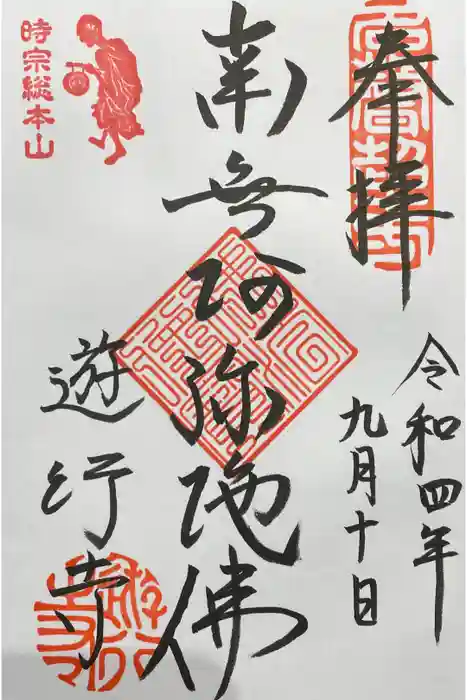 奉拝
令和四年
九月十日
南無阿弥陀佛
遊行寺
時宗総本山